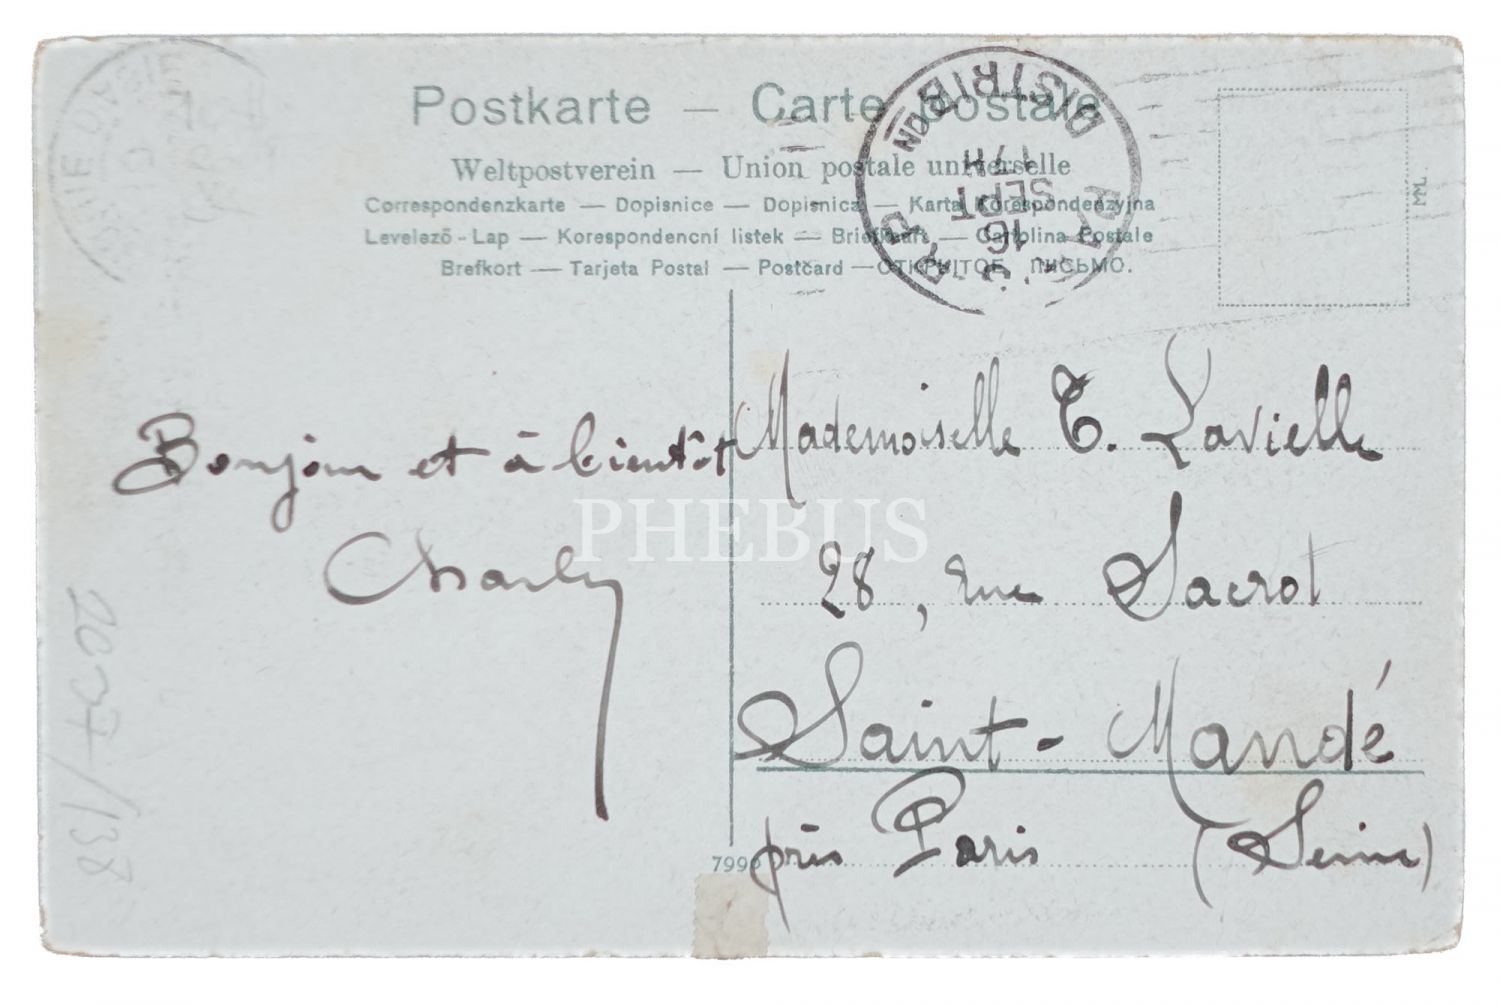 Postkarte — Carte postale
Weltpostverein — Union postale universelle
Correspondenzkarte — Dopisnice — Dopisnica — Karta Korespondencyjna
Levelező-Lap — Korespondencní listek — Briefkaart — Cartolina Postale
Brefkort — Tarjeta Postal — Postcard — ОТКРЫТОЕ ПИСЬМО.
DISTRIBON
17H
16 SEPT
PARIS
MM
Bonjour et à bientôt
Charly
Mademoiselle T. Lavielle
28, rue Sacrot
Saint-Mandé
près Paris (Seine)
PHEBUS
2007/138